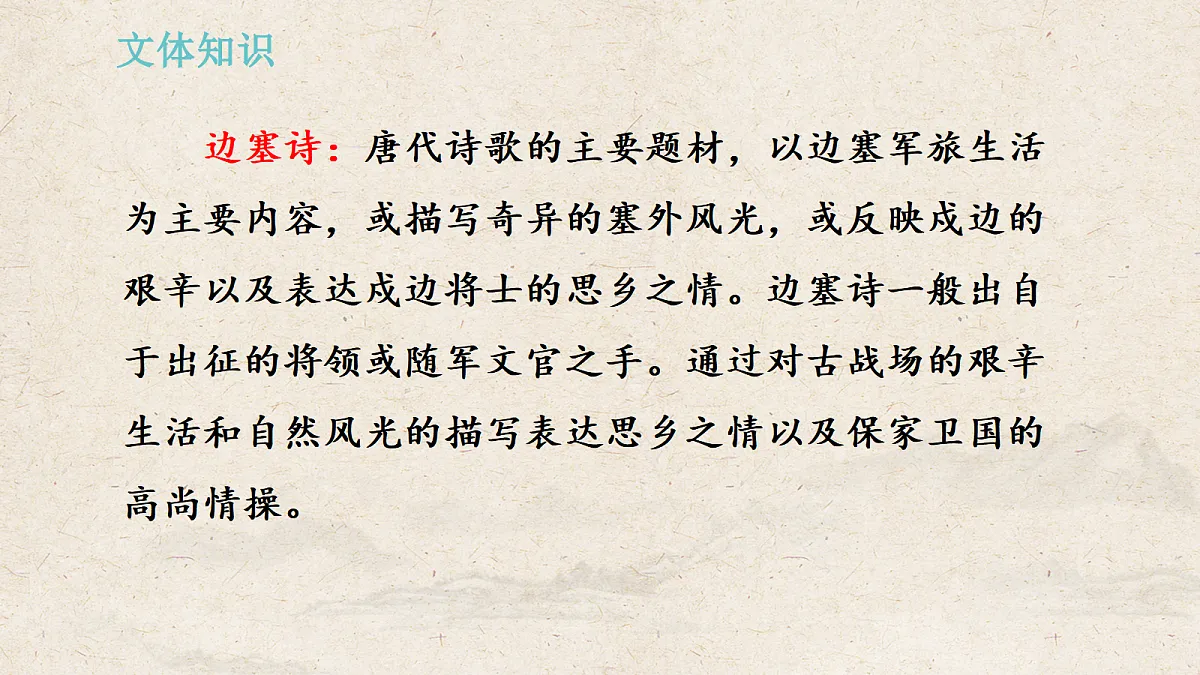 文体知识
边塞诗：唐代诗歌的主要题材，以边塞军旅生活
为主要内容，或描写奇异的塞外风光，或反映戍边的
艰辛以及表达戍边将士的思乡之情。边塞诗一般出自
于出征的将领或随军文官之手。通过对古战场的艰辛
生活和自然风光的描写表达思乡之情以及保家卫国的
高尚情操。